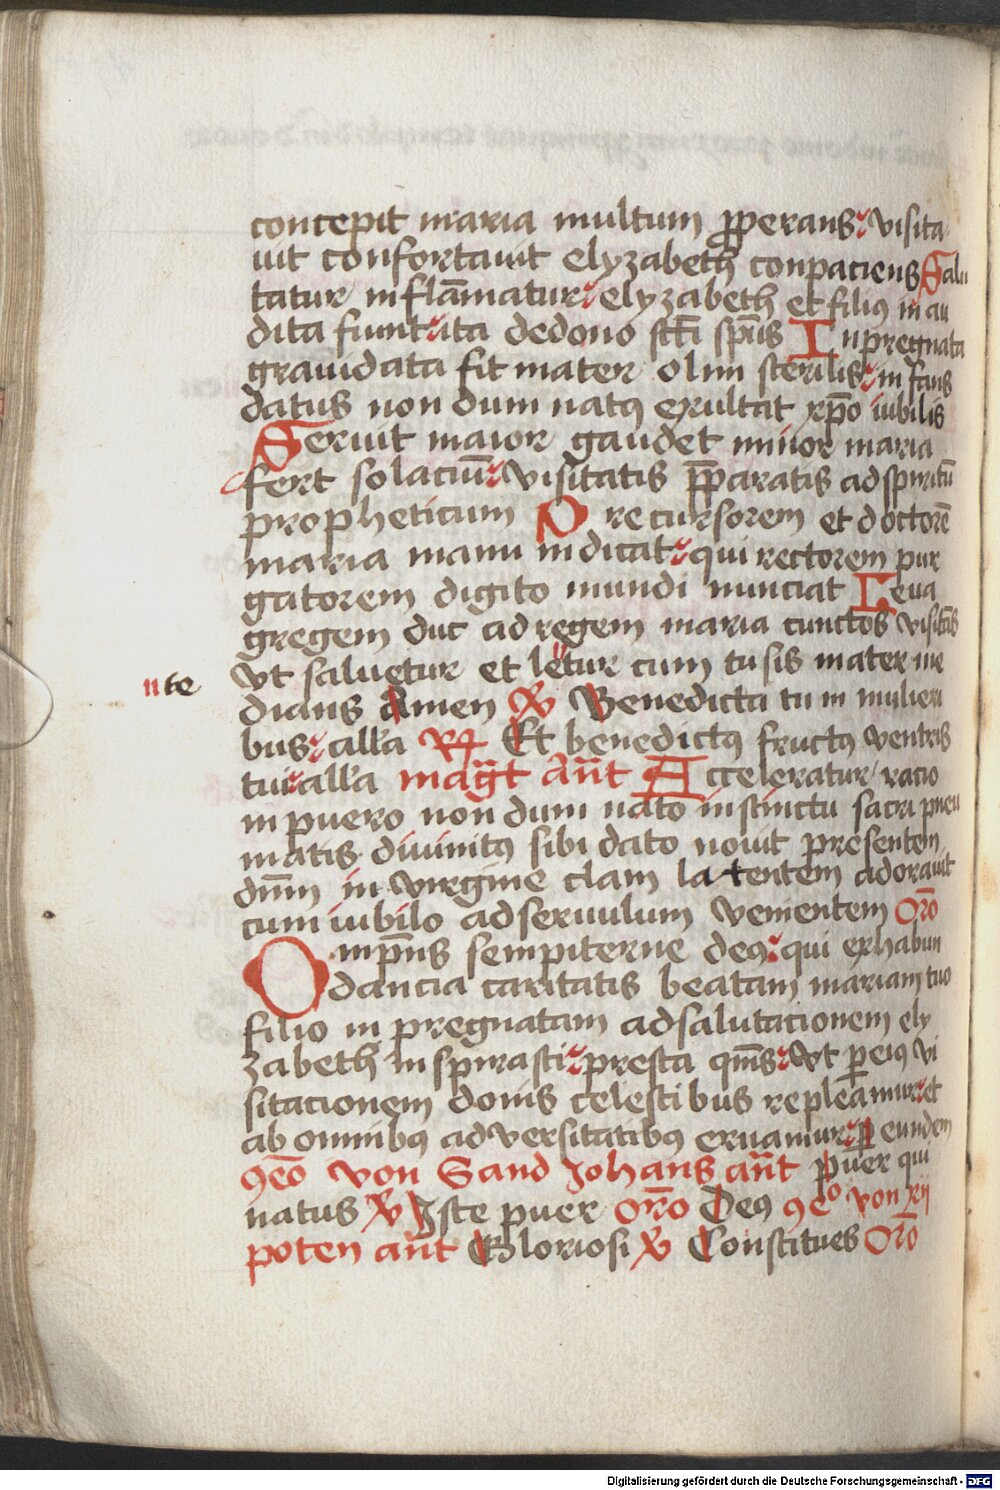 concepit maria multum ꝓperans visita
uit confortauit elyzabeth conpaciens Salu
tatur inflāmatur elyzabeth et filiꝰ in au
dita fiunt ita dedono sc̄ti sp̄us Inpregnata
grauidata fit mater olim sterilis infans
datus non dum natꝰ exultat xp̄o iubilis
Seruit maior gaudet minor maria
fert solaciū visitatis p̄paratis ad spiritū
propheticum Precursorem et doctorē
maria manu indicat qui rectorem pur
gatorem digito mundi nunciat Leua
gregem duc ad regem maria cunctos visitās
Vt saluetur et letetur cum tu sis mater me
"te
dians Amen ℣ Benedicta tu in mulieri
bus alla ℟ Et benedictꝰ fructꝰ ventris
tui alla magt̄ an̄t Acceleratur racio
in puero non dum nato instinctu sacri pneu
matis diuinitꝰ sibi dato nouit presentem
dnm̄ in virgine clam latentem adorauit
cum iubilo ad seruulum vementem Or̄o
Omp̄ns sempiterne deꝰ qui exhabun
dancia caritatis beatam mariam tuo
filio inpregnatam ad salutacionem ely
zabeth inspirasti presta qm̄s vt ꝑ eiꝰ vi
sitacionem donis celestibus repleamur et
ab omnibꝰ aduersitatibꝰ eruamur ꝑ eundem
ꝯeō von Sand Johans an̄t puer qui
natus ℣ Iste puer Or̄o Deꝰ ꝯeo von xii
poten an̄t Gloriosi ℣ Constitues Or̄o
Digitalisierung gefördert durch die Deutsche Forschungsgemeinschaft - DFG